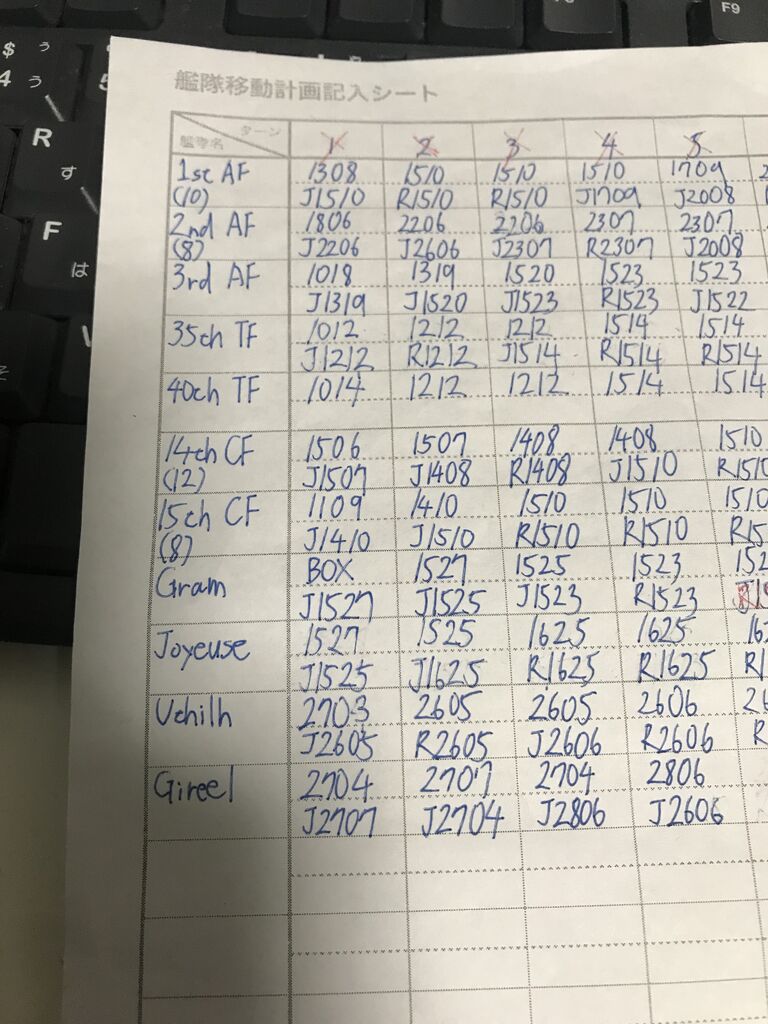 F9
$ う
4 う
5
R
す
F
は
艦隊移動計画記入シート
ターン
艦隊名
1 2 3 4 5
1st AF 1308 1510 1510 1510 1709
(10) J1510 R1510 R1510 J1709 J2008
2nd AF 1806 2206 2206 2307 2307
(8) J2206 J2606 J2307 R2307 J2008
3rd AF 1018 1319 1520 1523 1523
J1319 J1520 J1523 R1523 J1522
35th TF 1012 1212 1212 1514 1514
J1212 R1212 J1514 R1514 R1514
40th TF 1014 1212 1212 1514 1514
14th CF 1506 1507 1408 1408 1510
(12) J1507 J1408 R1408 J1510 R1510
15th CF 1109 1410 1510 1510 1510
(8) J1410 J1510 R1510 R1510
Gram BOX 1527 1525 1523
J1527 J1525 J1523 R1523
Joyeuse 1527 1525 1625 1625
J1525 J1625 R1625 R1625
Uchilh 2703 2605 2605 2606
J2605 R2605 J2606 R2606
Gireel 2704 2707 2704 2806
J2707 J2704 J2806 J2606